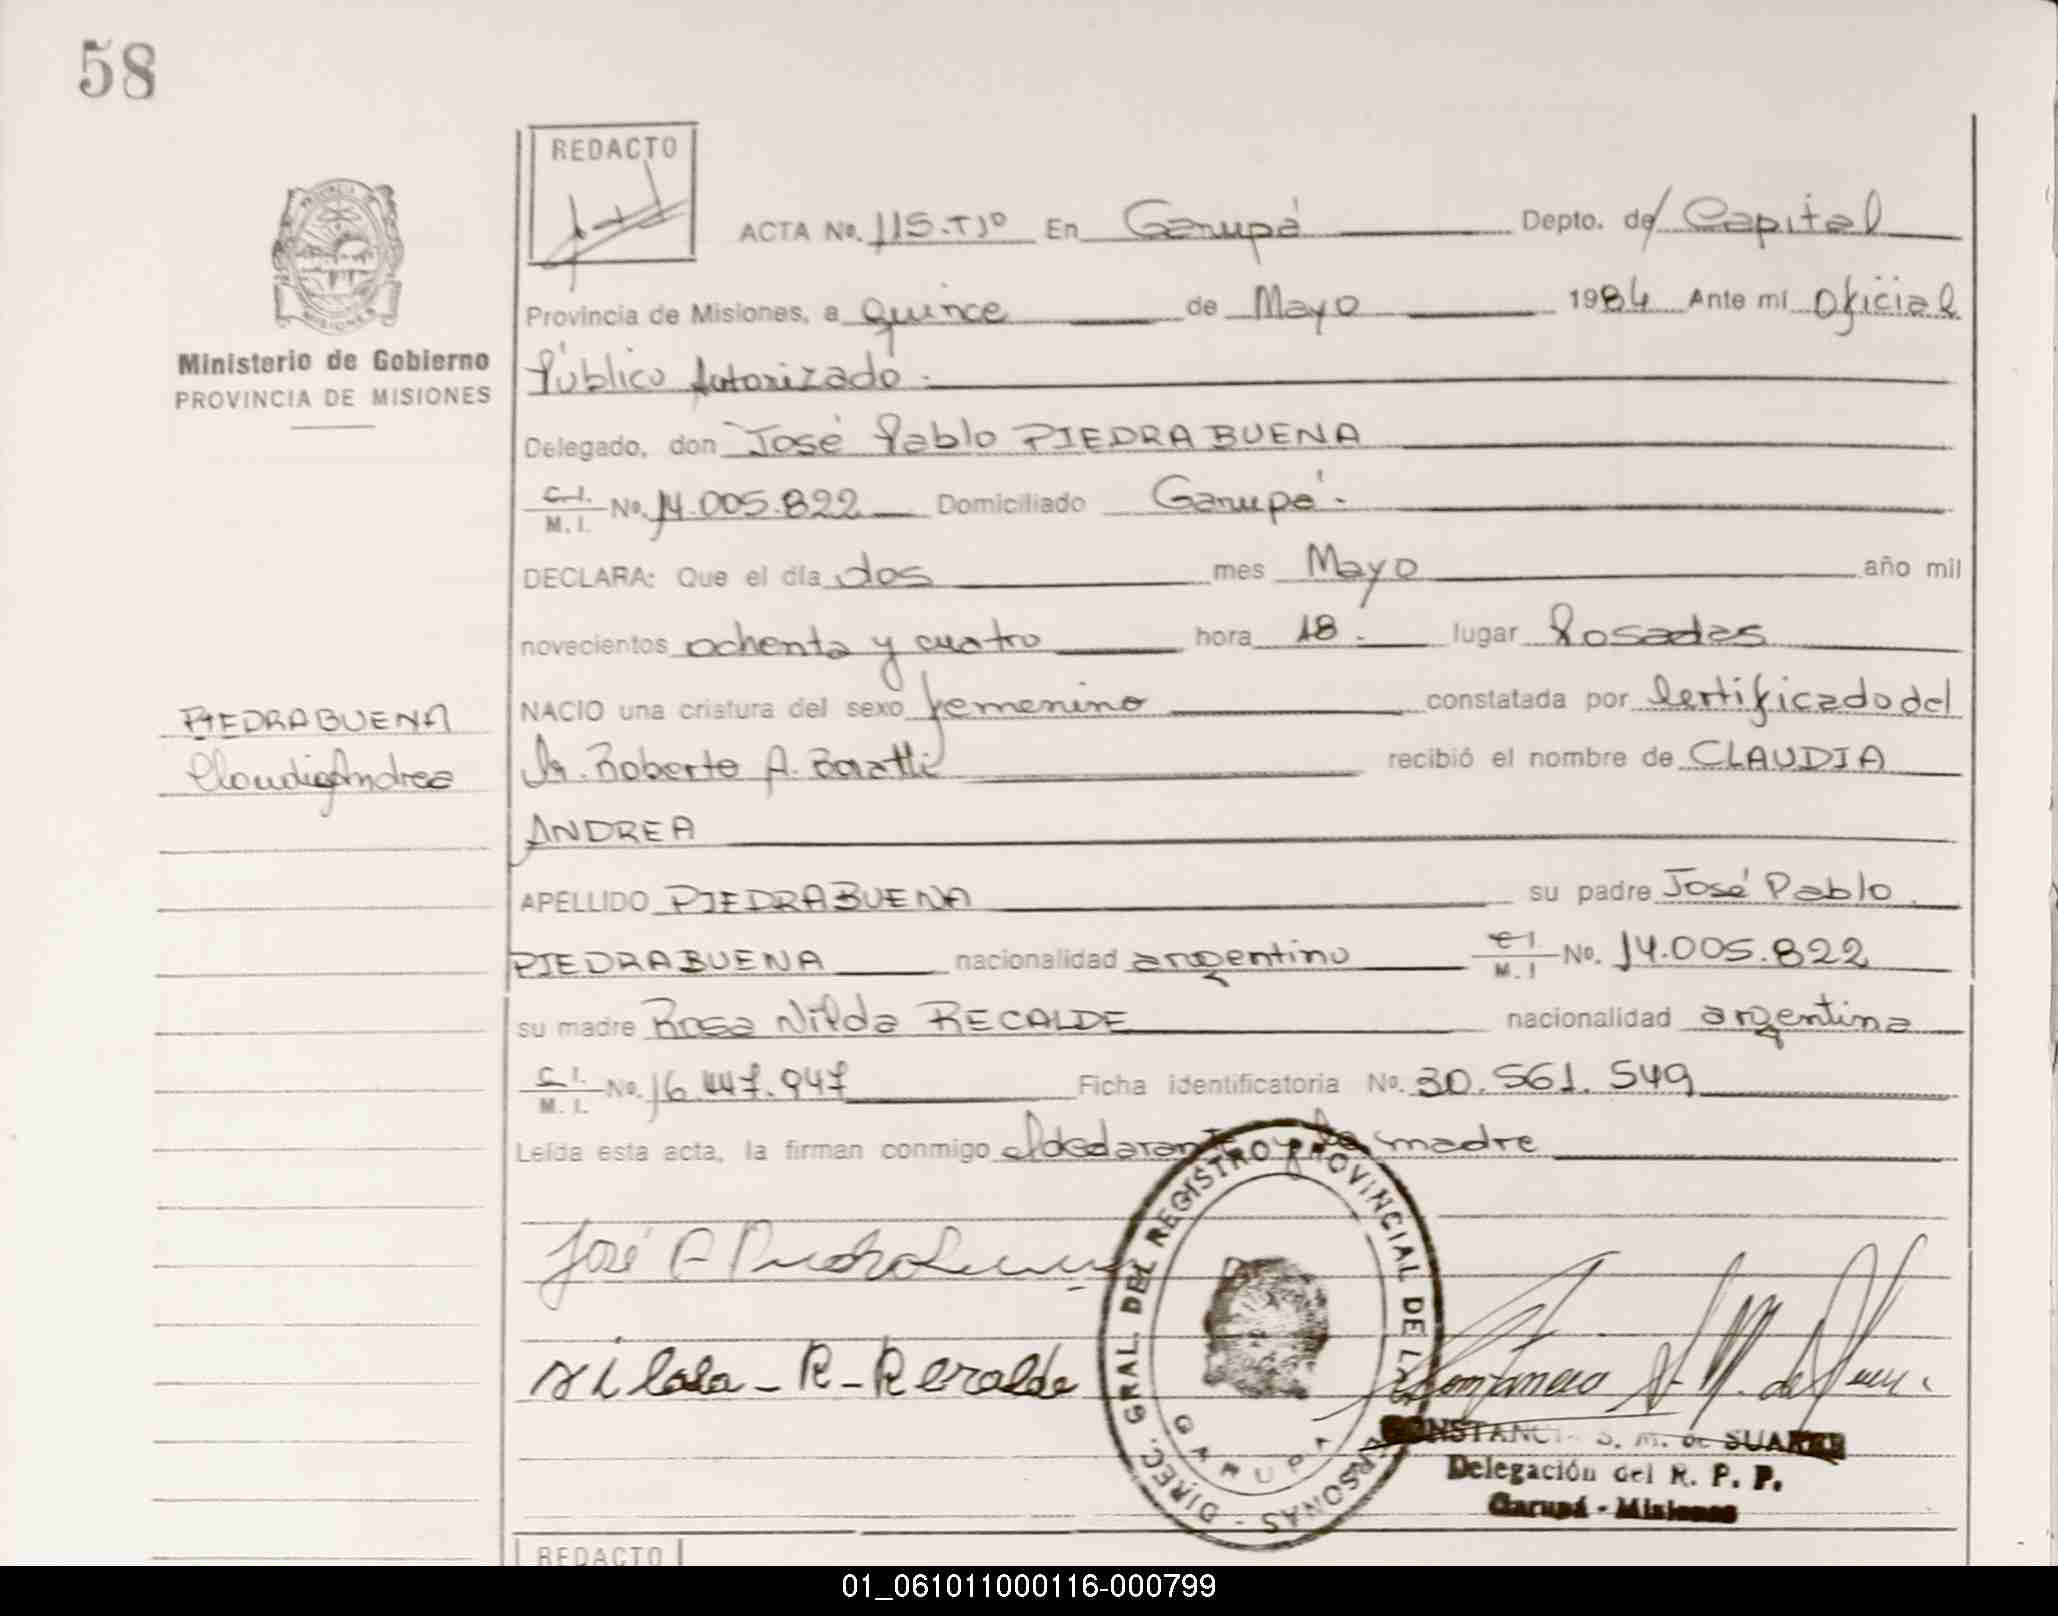 58
REDACTO
ACTA No. 115.TIº En Garupá Depto. de Capital
Provincia de Misiones, a quince de Mayo 1984 Ante mí Oficial
Público Autorizado.
Ministerio de Gobierno
PROVINCIA DE MISIONES
Delegado, don José Pablo PIEDRABUENA
C.I. M.I. No. 14.005.822 Domiciliado Garupá.
DECLARA: Que el día dos mes Mayo año mil
novecientos ochenta y cuatro hora 18. lugar Posadas
NACIO una criatura del sexo femenino constatada por Certificado del
PIEDRABUENA
Claudia Andrea
Dr. Roberto A. recibió el nombre de CLAUDIA
ANDREA
APELLIDO PIEDRABUENA su padre José Pablo
PIEDRABUENA nacionalidad argentino C.I. M.I No. 14.005.822
su madre Rosa Nilda RECALDE nacionalidad argentina
C.I. M.I. No. 16.447.947 Ficha identificatoria No. 30.561.549
Leída esta acta, la firman conmigo el declarante y la madre
DIREC. GRAL. DEL REGISTRO PROVINCIAL DE LAS PERSONAS -
GARUPA
CONSTANCIA S. M. de SUAREZ
Delegación del R. P. P.
Garupá - Misiones
REDACTO
01_061011000116-000799